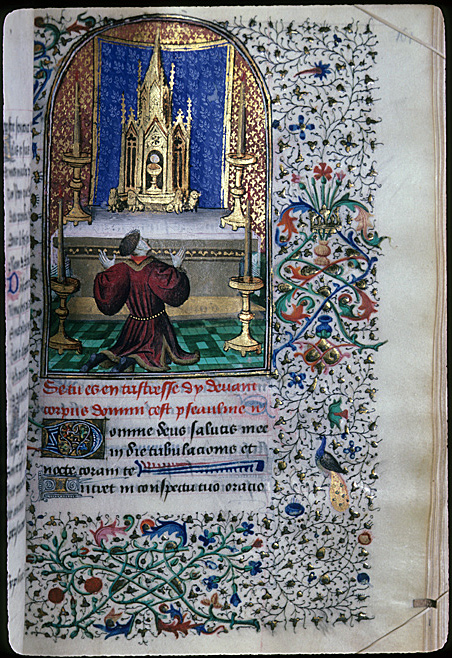 Se tu es en tristresse dy devant
corpus domini cest pseaulme
Domine deus salutis mee
in die tribulacionis et
nocte coram te
Intret in conspectu tuo oratio